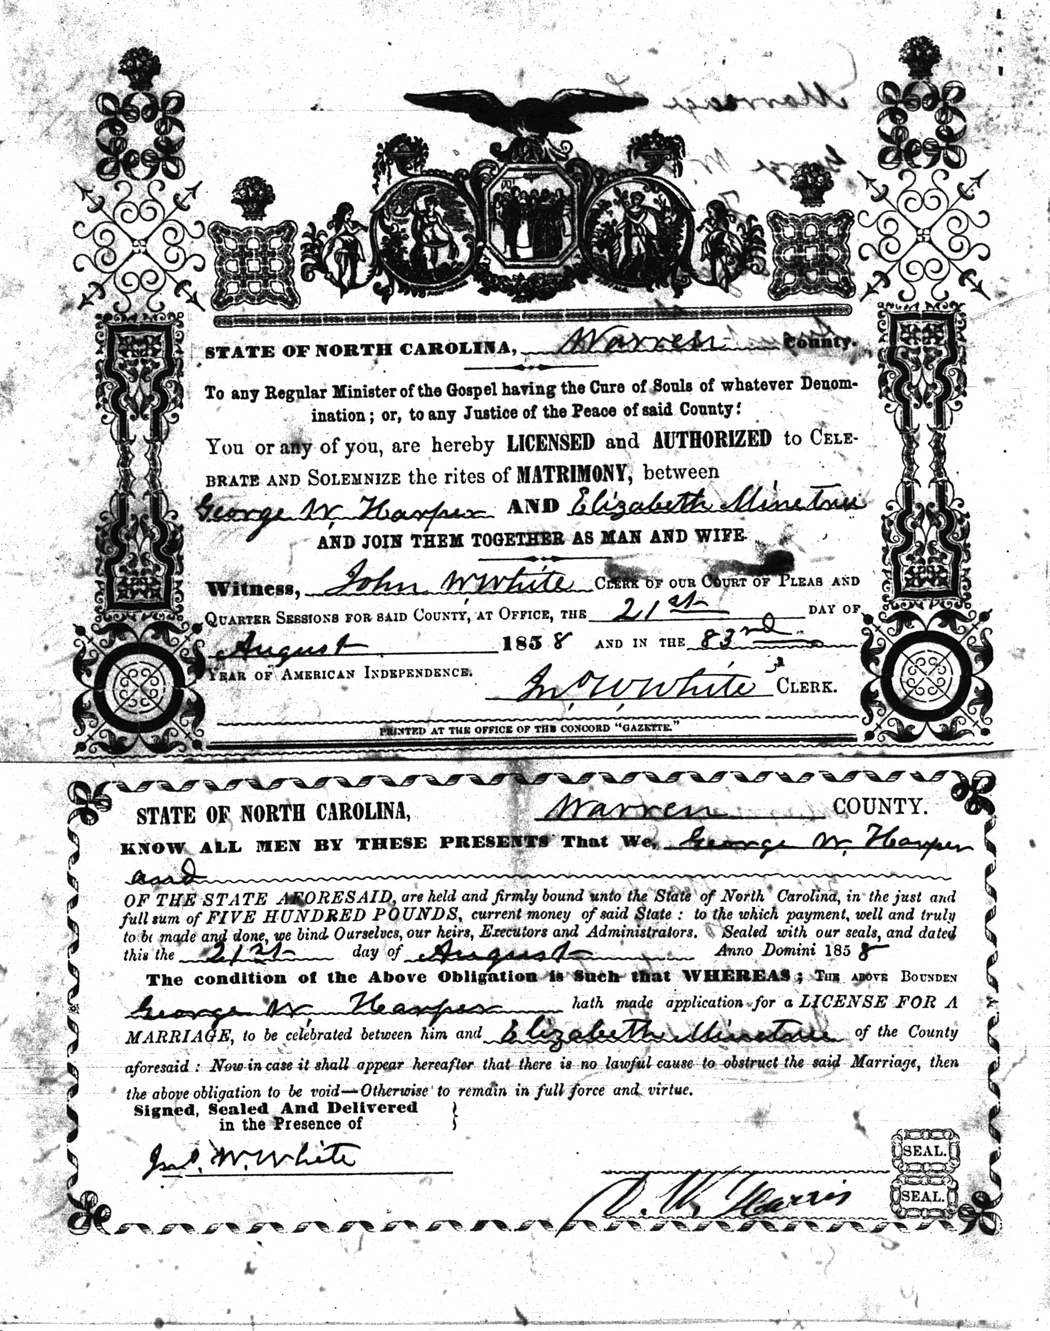 STATE OF NORTH CAROLINA, Warren County.
To any Regular Minister of the Gospel having the Cure of Souls of whatever Denom-
ination; or, to any Justice of the Peace of said County:
You or any of you, are hereby LICENSED and AUTHORIZED to CELE-
BRATE AND SOLEMNIZE the rites of MATRIMONY, between
George W. Harper AND Elizabeth Minetree
AND JOIN THEM TOGETHER AS MAN AND WIFE.
Witness, John W White CLERK OF OUR COURT OF PLEAS AND
QUARTER SESSIONS FOR SAID COUNTY, AT OFFICE, THE 21st DAY OF
August 1858 AND IN THE 83rd
YEAR OF AMERICAN INDEPENDENCE.
Jno W White CLERK.
PRINTED AT THE OFFICE OF THE CONCORD "GAZETTE."
STATE OF NORTH CAROLINA, Warren COUNTY.
KNOW ALL MEN BY THESE PRESENTS That We, George W. Harper
and
OF THE STATE AFORESAID, are held and firmly bound unto the State of North Carolina, in the just and
full sum of FIVE HUNDRED POUNDS, current money of said State: to the which payment, well and truly
to be made and done, we bind Ourselves, our heirs, Executors and Administrators. Sealed with our seals, and dated
this the 21st day of August Anno Domini 1858
The condition of the Above Obligation is Such that WHEREAS; THE ABOVE BOUNDEN
George W. Harper hath made application for a LICENSE FOR A
MARRIAGE, to be celebrated between him and Elizabeth Minetree of the County
aforesaid: Now in case it shall appear hereafter that there is no lawful cause to obstruct the said Marriage, then
the above obligation to be void—Otherwise to remain in full force and virtue.
Signed, Sealed And Delivered
in the Presence of
Jno. W. White
SEAL.
W. Harris SEAL.